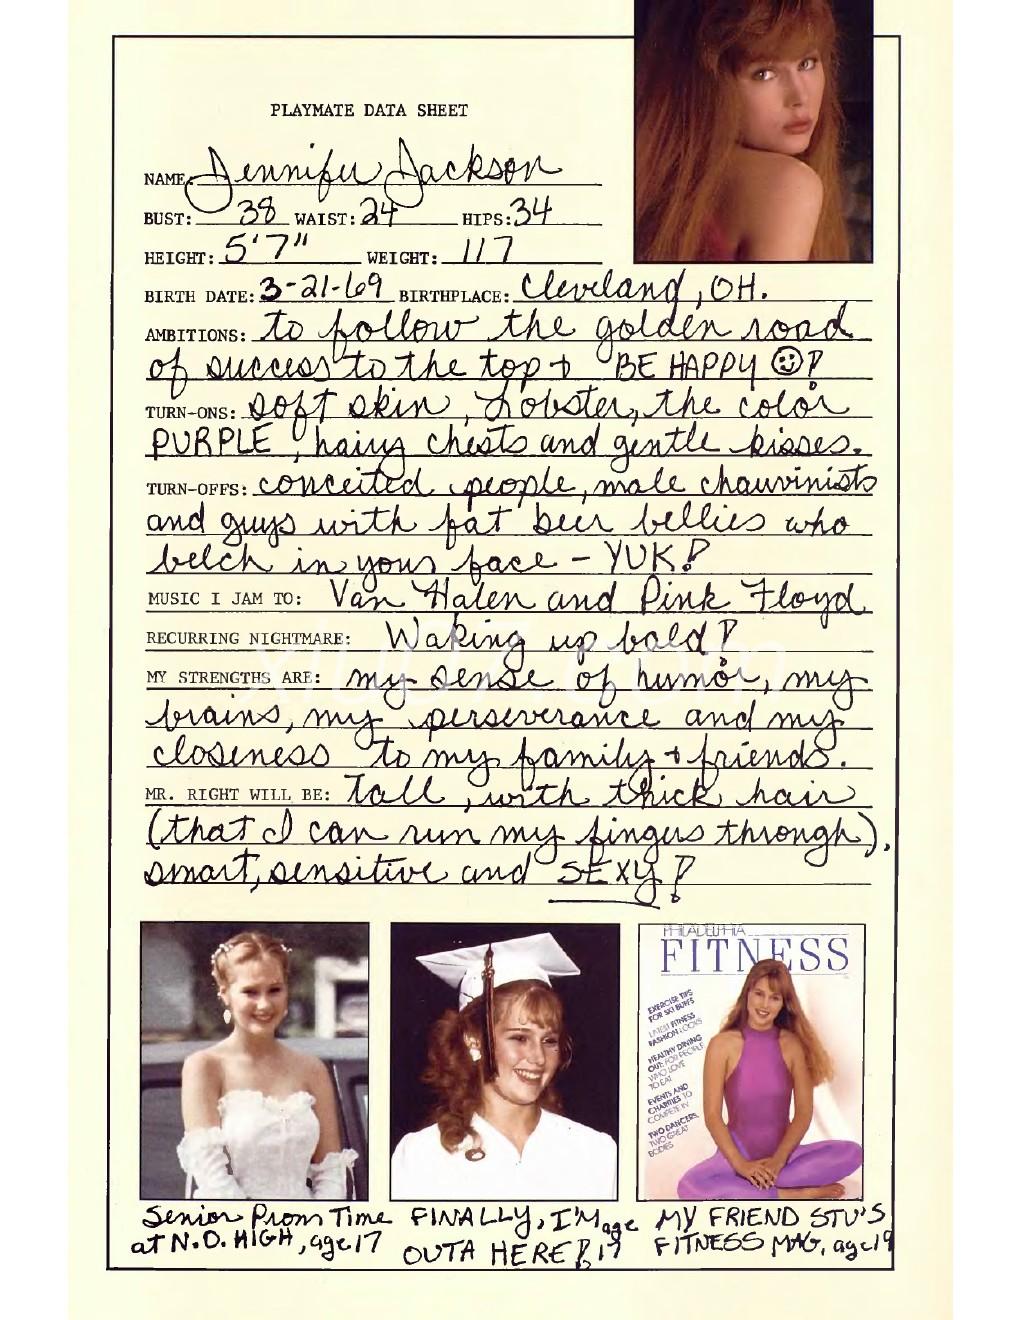 PLAYMATE DATA SHEET
NAME: Jennifer Jackson
BUST: 38 WAIST: 24 HIPS: 34
HEIGHT: 5'7" WEIGHT: 117
BIRTH DATE: 3-21-69 BIRTHPLACE: Cleveland, OH.
AMBITIONS: to follow the golden road
of success to the top + BE HAPPY ☺!
TURN-ONS: soft skin, Lobster, the color
PURPLE, hairy chests and gentle kisses.
TURN-OFFS: conceited people, male chauvinists
and guys with fat beer bellies who
belch in your face - YUK!
MUSIC I JAM TO: Van Halen and Pink Floyd
RECURRING NIGHTMARE: Waking up bald!
MY STRENGTHS ARE: my sense of humor, my
brains, my perseverance and my
closeness to my family + friends.
MR. RIGHT WILL BE: Tall, with thick hair
(that I can run my fingers through),
smart, sensitive and SEXY!
PHILADELPHIA
FITNESS
EXERCISE TIPS
FOR SKI BUFFS
LATEST FITNESS
FASHION LOOKS
HEALTHY DINING
OUT: FOR PEOPLE
WHO LOVE
TO EAT
EVENTS AND
CHARITIES TO
COMPETE IN
TWO DANCERS,
TWO GREAT
BODIES
Senior Prom Time
at N.O. HIGH, age 17
FINALLY, I'M age
OUTA HERE! 17
MY FRIEND STU'S
FITNESS MAG, age 19